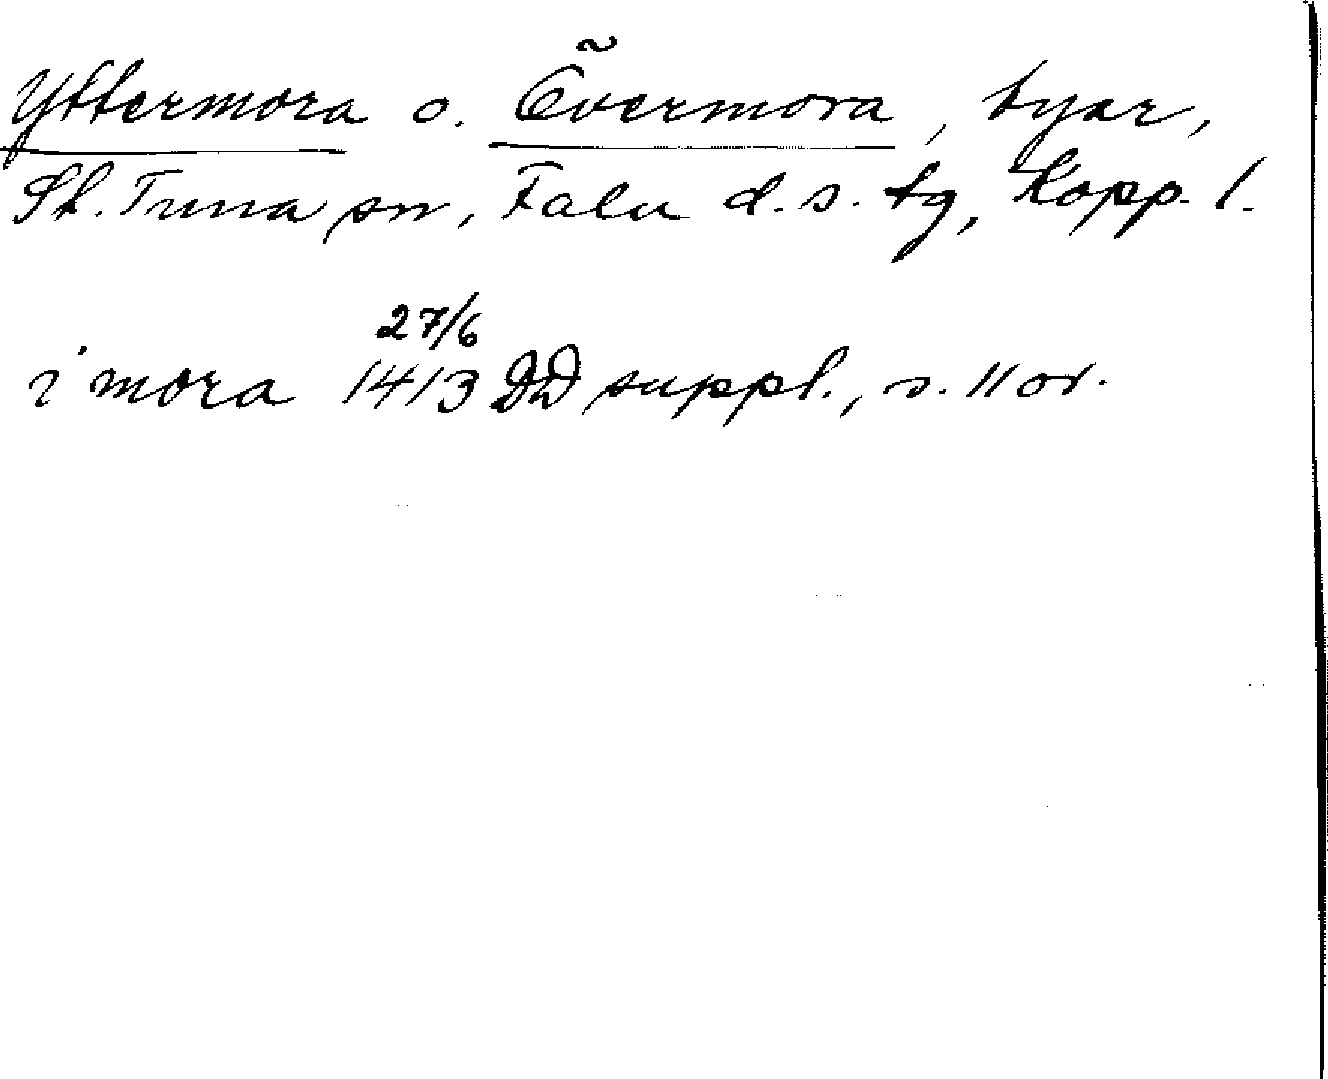 Yttermora o. Övermora, byar,
St. Tuna sn, Falu d. s. tg, Kopp. l.
27/6
i mora 1413 DD suppl., s. 11 or.